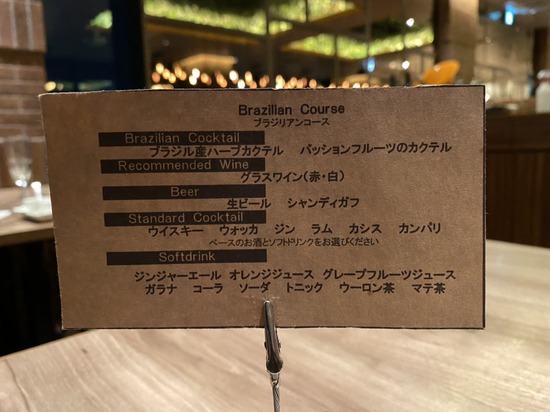 Brazilian Course
ブラジリアンコース
Brazilian Cocktail
ブラジル産ハーブカクテル パッションフルーツのカクテル
Recommended Wine
グラスワイン(赤・白)
Beer
生ビール シャンディガフ
Standard Cocktail
ウイスキー ウォッカ ジン ラム カシス カンパリ
ベースのお酒とソフトドリンクをお選びください
Softdrink
ジンジャーエール オレンジジュース グレープフルーツジュース
ガラナ コーラ ソーダ トニック ウーロン茶 マテ茶